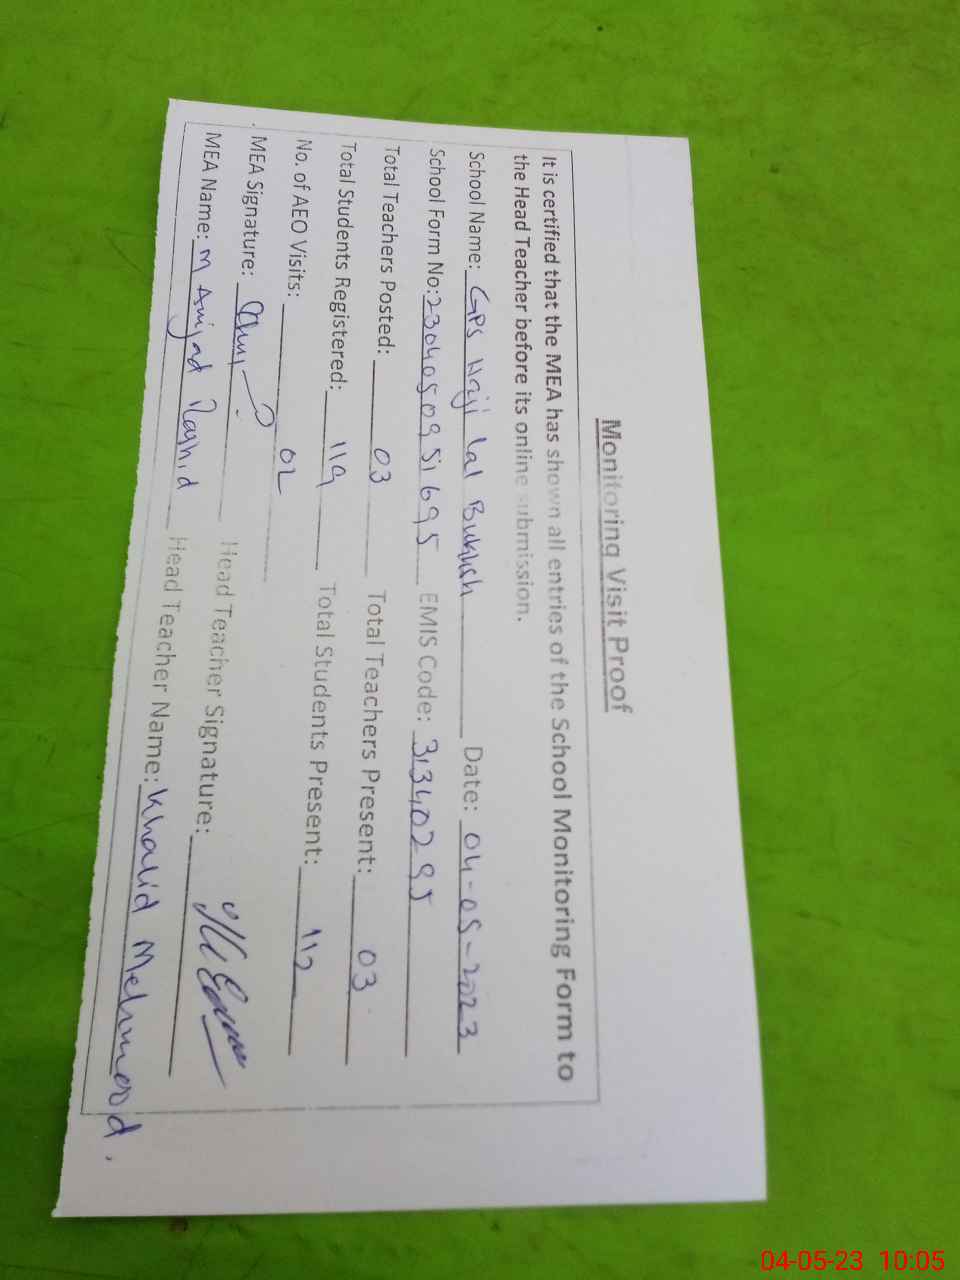 Monitoring Visit Proof
It is certified that the MEA has shown all entries of the School Monitoring Form to
the Head Teacher before its online submission.
School Name: GPS Haji Lal Bukhsh Date: 04-05-2023
School Form No: 2304050951695 EMIS Code: 31340295
Total Teachers Posted: 03 Total Teachers Present: 03
Total Students Registered: 119 Total Students Present: 112
No. of AEO Visits: 02
MEA Signature: Head Teacher Signature:
MEA Name: M Amjad Rashid Head Teacher Name: Khalid Mehmood.
04-05-23 10:05